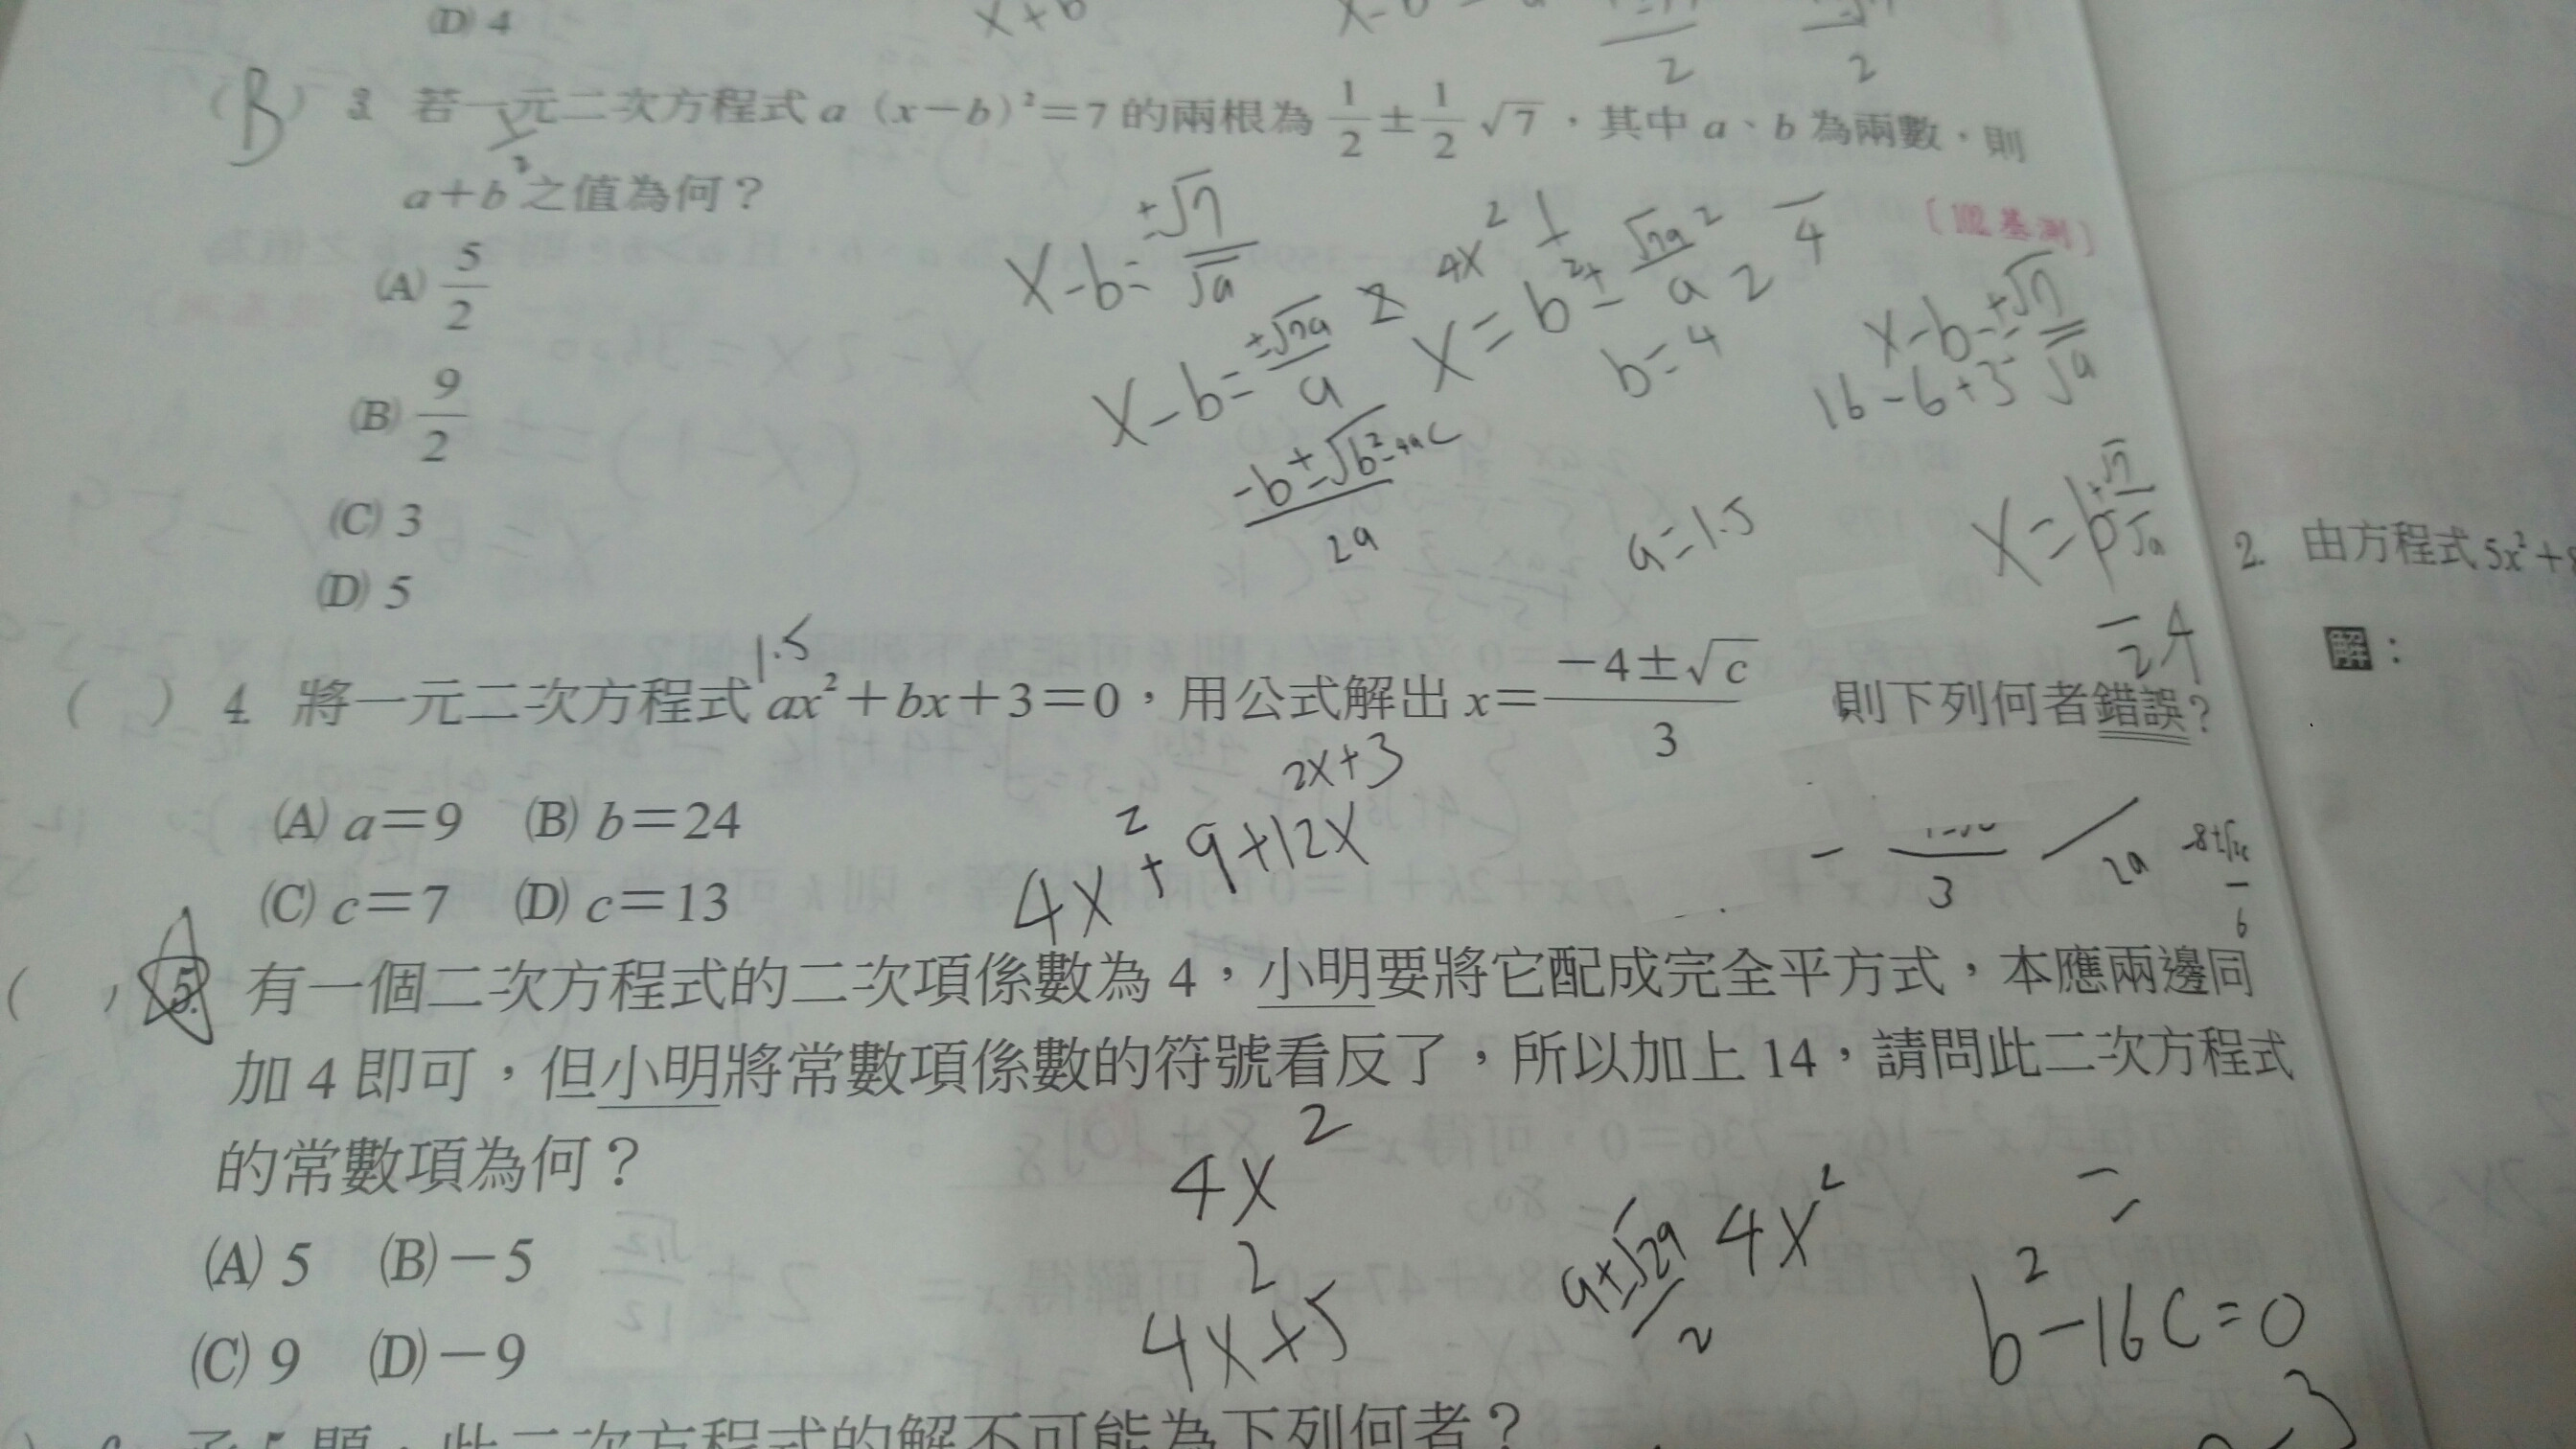 (D) 4
x+b
2
2
(B) 3. 若一元二次方程式 a (x−b)²=7 的兩根為 1/2 ± 1/2 √7，其中 a、b 為兩數，則
a+b 之值為何？
〔102.基測〕
(A) 5/2
(B) 9/2
(C) 3
(D) 5
x−b= ±√7/√a
x−b= ±√7a/a
4x²
b=4
x−b= ±√7/√a
16−6+3
−b±√b²−4ac / 2a
a=1.5
2. 由方程式 5x²+8
解：
1.5
( ) 4. 將一元二次方程式 ax²+bx+3=0，用公式解出 x= −4±√c / 3 則下列何者錯誤？
(A) a=9 (B) b=24
(C) c=7 (D) c=13
2x+3
4x²+9+12x
3
2a
6
( ) 5. 有一個二次方程式的二次項係數為 4，小明要將它配成完全平方式，本應兩邊同
加 4 即可，但小明將常數項係數的符號看反了，所以加上 14，請問此二次方程式
的常數項為何？
(A) 5 (B) −5
(C) 9 (D) −9
4x²
4x²+5
9±√29 / 2
4x²
b²−16c=0
承 5 題，此二次方程式的解不可能為下列何者？